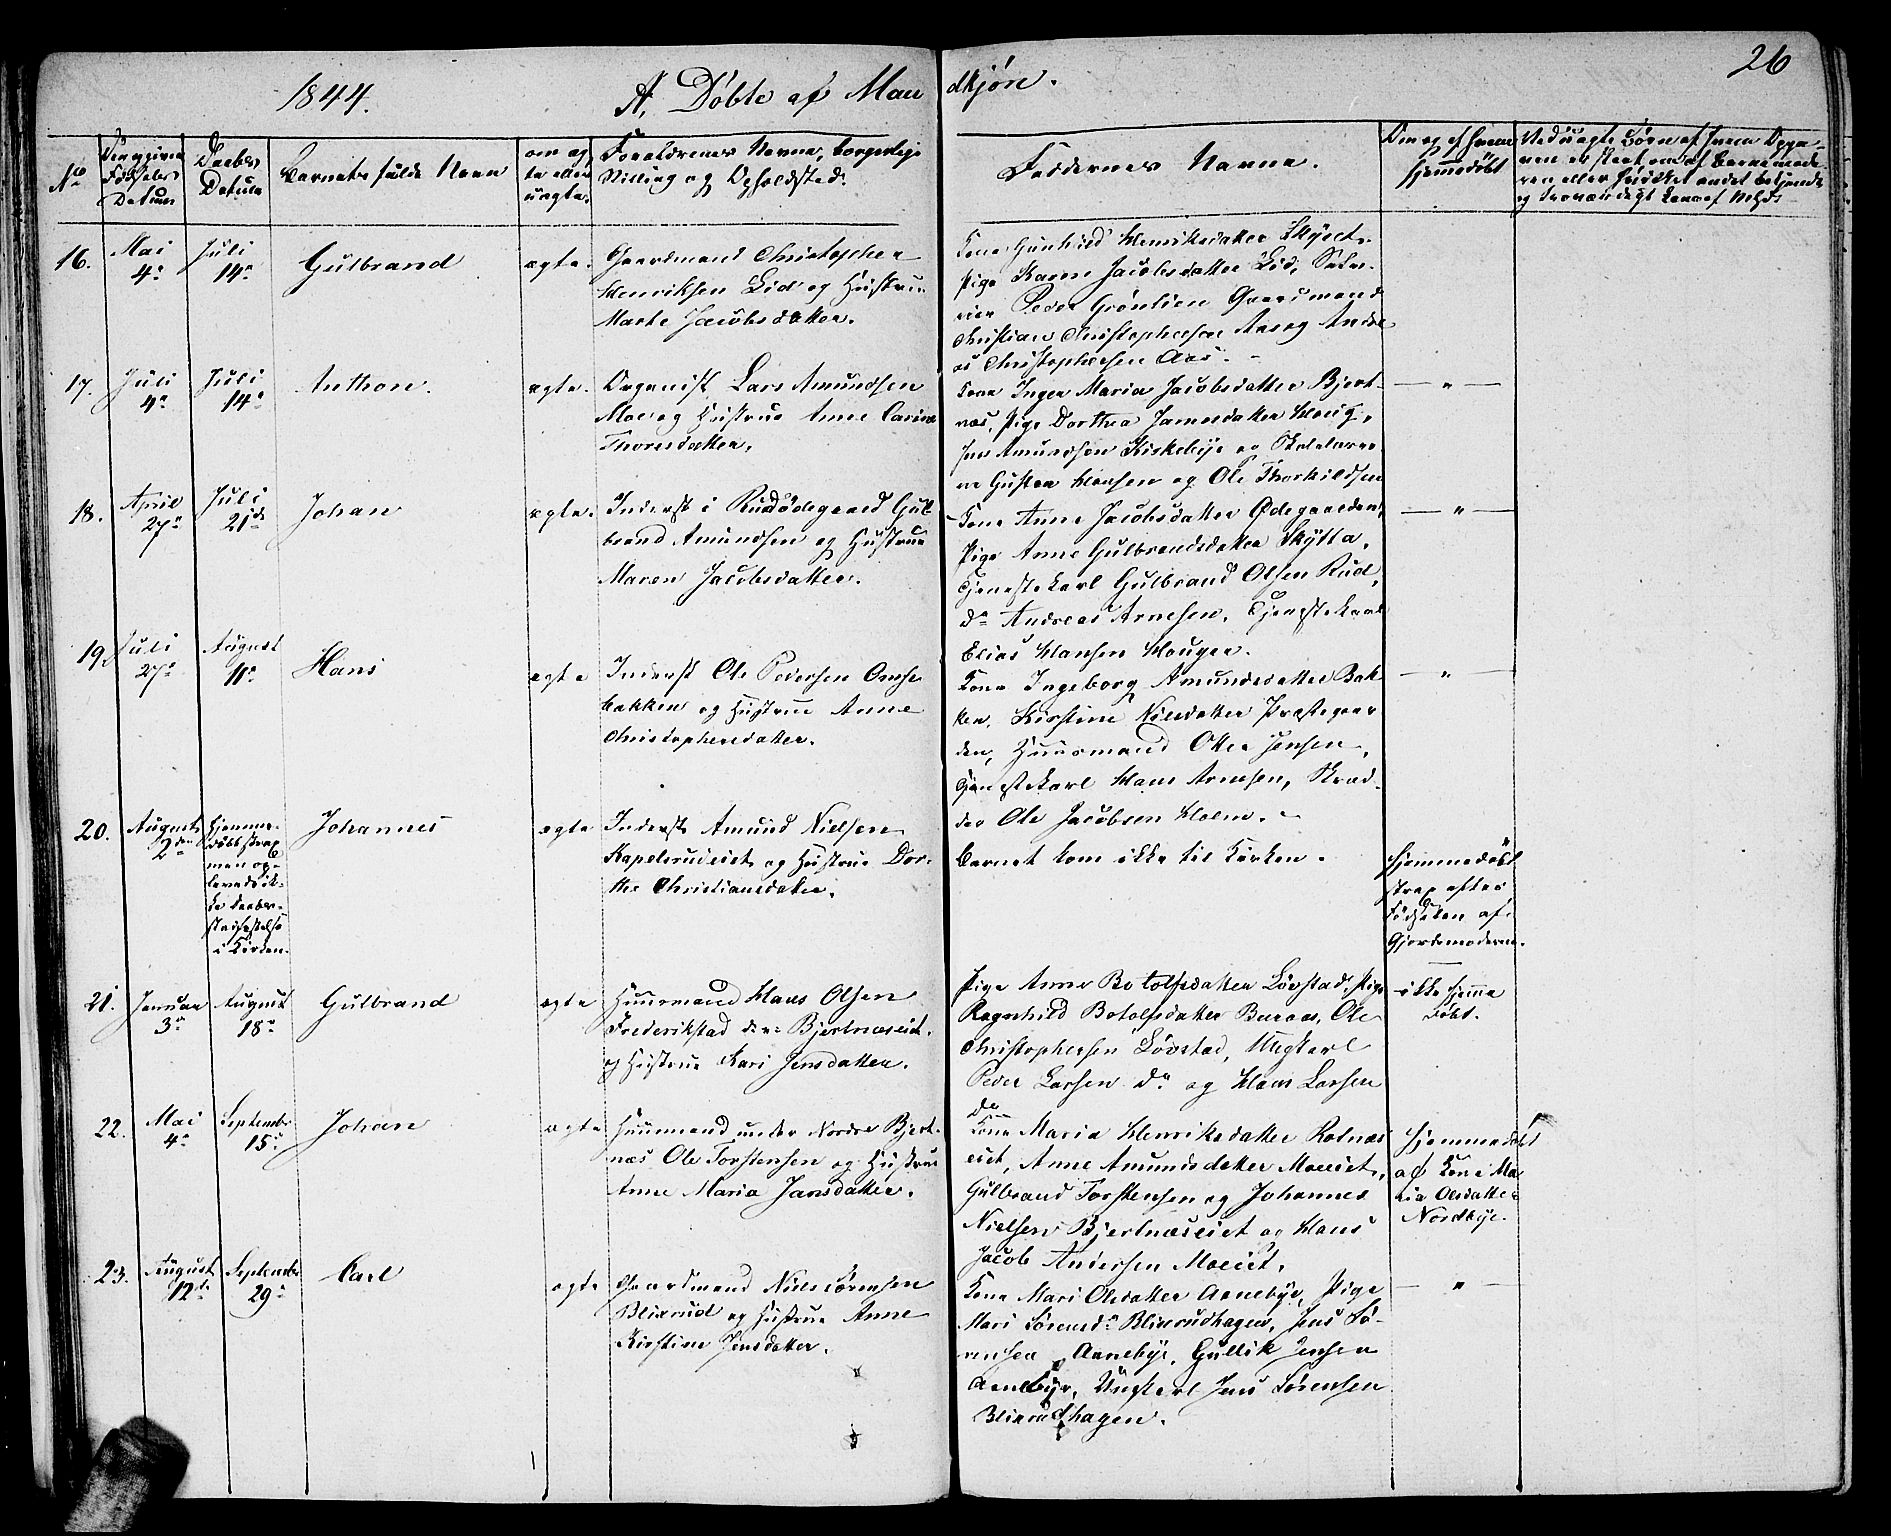 26
1844. A. Døbte af Man dkjøn.
No
Den opgivne Fødsels Datum
Daabs Datum
Barnets fulde Navn
om ægte eller uægte.
Forældrenes Navne, borgerlige Stilling og Opholdsted.
Faddernes Navne.
Om og af hvem hjemmedöbt
16. Mai 4de Juli 14de Gulbrand ægte. Gaardmand Christopher
Henriksen Lid og Hustrue
Marte Jacobsdatter.
Kone Gunhild Henriksdatter Skyset,
Pige Karen Jacobsdatter Lid,
Peder Grönlien Gaardmand
Christian Christophersen Aas og Andre
as Christophersen Aas.
17. Juli 4de Juli 14de Anthon. ægte. Organist Lars Amundsen
Moe og Hustrue Anne Carine
Thoresdatter.
Kone Inger Maria Jacobsdatter Bjert-
næs, Pige Dorthea Hansdatter Haug,
Jens Amundsen Kirkebye og Skolelærer
ne Gusten Hansen og Ole Thorkildsen
18. April 27de Juli 21de Johan ægte. Inderst i Rudsödegaard Gul
brand Amundsen og Hustrue
Maren Jacobsdatter.
Kone Anne Jacobsdatter Ødegaarden,
Pige Anne Gulbrandsdatter Skytta,
Tjenestekarl Gulbrand Olsen Rud,
do Andreas Arnesen, Tjenestekarl
Elias Hansen Hauger.
19. Juli 27de August 11te Hans ægte Inderst Ole Pedersen
bakken og Hustrue Anne
Christophersdatter.
Kone Ingeborg Amundsdatter Bak
ken, Kirstine Nilsdatter Præstegaar
den, Huusmand Otter Jensen,
Tjenestekarl Hans Arnesen, Skræd-
der Ole Jacobsen Holm.
20. August 2den Hjemme-
döbt strax
men op-
levede ik-
ke Daabs-
stadfæstelse
i Kirken.
Johannes ægte Inderst Amund Nielsen
Kapelsrudeiet og Hustrue Dor-
the Christiansdatter.
Barnet kom ikke til Kirken.
Hjemmedöbt
strax efter
Födselen af
Gjordemoderen.
21. Januar 3de August 18de Gulbrand ægte Huusmand Hans Olsen
Frederikstad Bjertnæseiet.
og Hustrue Kari Jensdatter.
Pige Anne Botolfsdatter Lövstad, Pige
Ragnhild Botolfsdatter Buraas, Ole
Christophersen Lövstad, Ungkarl
Peder Larsen do og Hans Larsen
do
ikke hjemme
döbt.
22. Mai 4de September 15de Johan ægte Huusmand under Nordre Bjert-
næs Ole Torstensen og Hustrue
Anne Maria Jansdatter.
Kone Maria Henriksdatter Rotnæs
eiet, Anne Amundsdatter Moeeiet,
Gulbrand Torstensen og Johannes
Nielsen Bjertnæseiet og Hans
Jacob Andersen Moeiet.
Hjemmedöbt
af Kone Ma
ria Olsdatter
Nordbye.
23. August 12te September 29de Carl ægte Gaardmand Niels Sörensen
Blixrud og Hustrue Anne
Kirstine Jensdatter.
Kone Mari Olsdatter Aanebye, Pige
Mari Sörensdr Blixrudhagen, Jens Sö-
rensen Aanebye, Gullik Jensen
Aanebye, Ungkarl Jens Sörensen
Blixrudhagen.